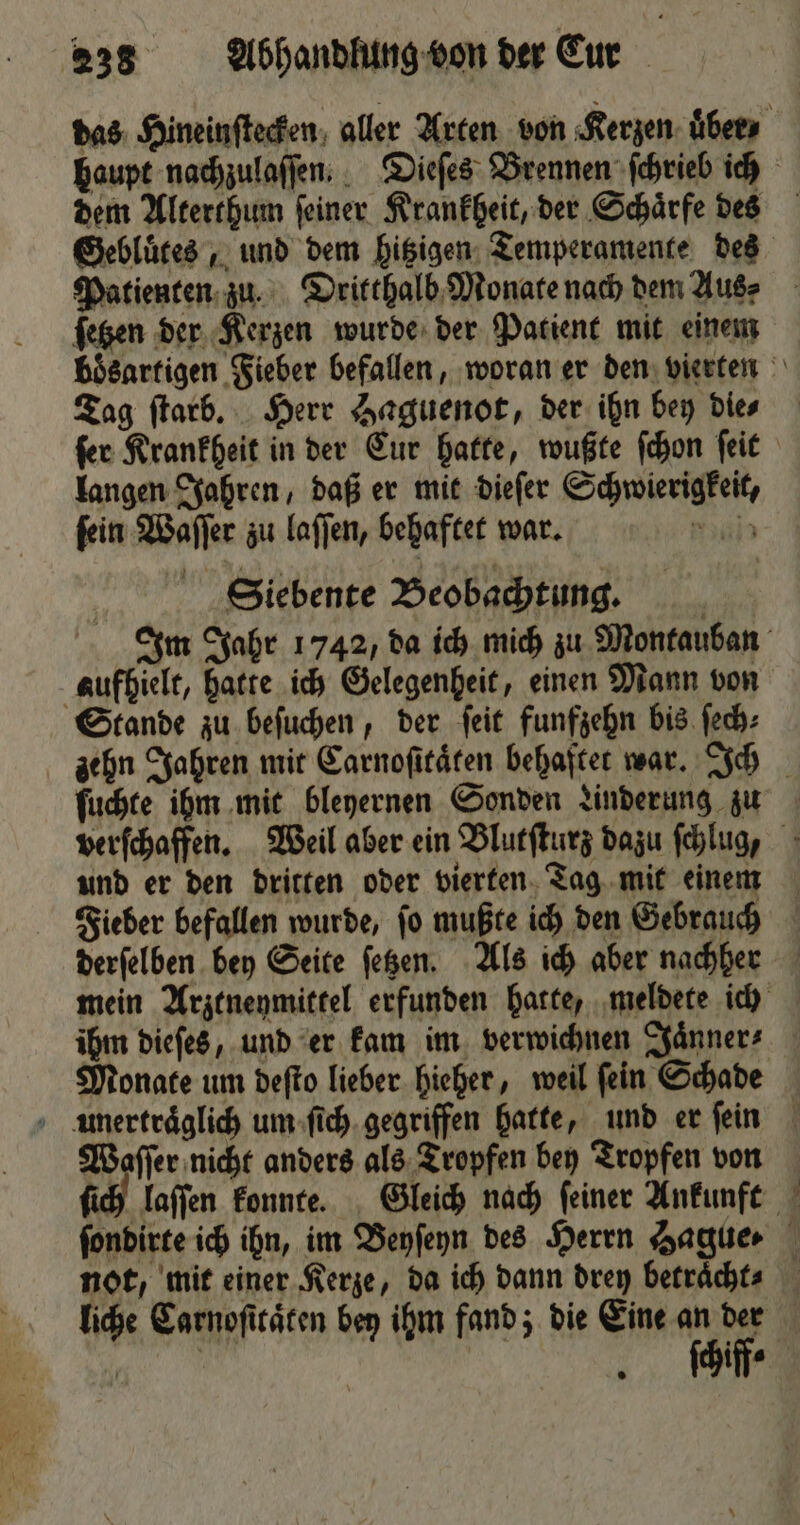 238 Abhandlung von der Cur
das Hineinſtecken, aller Arten von Kerzen uͤber⸗
haupt nachzulaſſen. Dieſes Brennen ſchrieb ich
dem Alterthum ſeiner Krankheit, der Schaͤrfe des
Gebluͤtes, und dem hitzigen Temperamente des
Patienten zu. Dritthalb Monate nach dem Aus⸗
ſetzen der Kerzen wurde der Patient mit einem
boͤsartigen Fieber befallen, woran er den vierten
Tag ſtarb. Herr Haguenot, der ihn bey die⸗
ſer Krankheit in der Cur hatte, wußte ſchon ſeit
langen Jahren, daß er mit dieſer Schwierigkeit,
ſein Waſſer zu laſſen, behaftet war.
Siebente Beobachtung.
Im Jahr 1742, da ich mich zu Montauban
aufhielt, hatte ich Gelegenheit, einen Mann von
Stande zu beſuchen, der ſeit funfzehn bis ſech⸗
zehn Jahren mit Carnoſitaͤten behaftet war. Ich
ſuchte ihm mit bleyernen Sonden Linderung zu
verſchaffen. Weil aber ein Blutſturz dazu ſchlug,
und er den dritten oder vierten Tag mit einem
Fieber befallen wurde, ſo mußte ich den Gebrauch
derſelben bey Seite ſetzen. Als ich aber nachher
mein Arztneymittel erfunden hatte, meldete ich
ihm dieſes, und er kam im verwichnen Jaͤnner⸗
Monate um deſto lieber hieher, weil ſein Schade
unertraͤglich um ſich gegriffen hatte, und er ſein
Waſſer nicht anders als Tropfen bey Tropfen von
ſich laſſen konnte. Gleich nach ſeiner Ankunft
ſondirte ich ihn, im Beyſeyn des Herrn Hague⸗
not, mit einer Kerze, da ich dann drey betraͤcht⸗
liche Carnoſitaͤten bey ihm fand; die Eine an der
ſchiff⸗